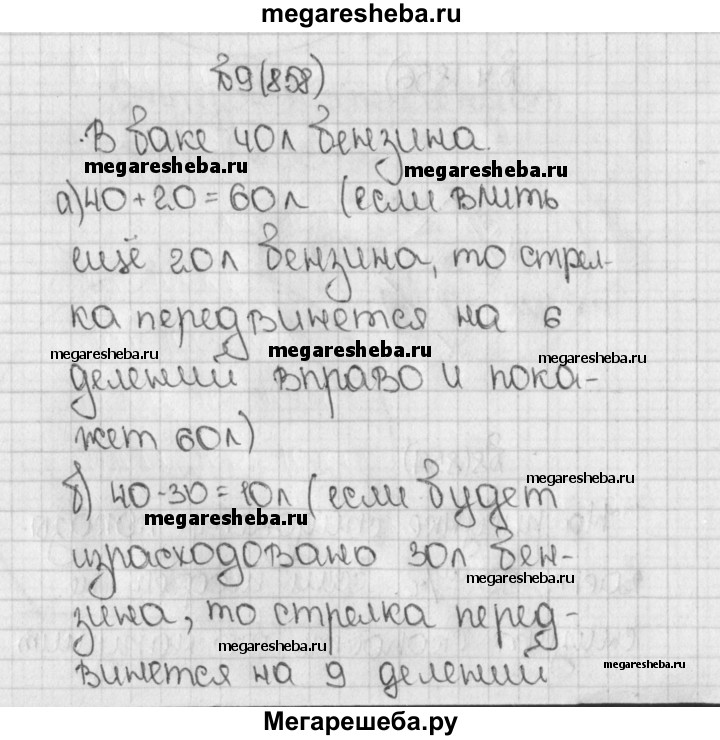 megaresheba.ru
№9(858)
В баке 40л бензина.
megaresheba.ru megaresheba.ru
а) 40+20=60л (если влить
ещё 20л бензина, то стрел-
ка передвинется на 6
megaresheba.ru megaresheba.ru megaresheba.ru
делений вправо и пока-
жет 60л)
megaresheba.ru
б) 40-30=10л (если будет
megaresheba.ru
израсходовано 30л бен-
megaresheba.ru
зина, то стрелка перед-
megaresheba.ru megaresheba.ru
винется на 9 делений
Мегарешеба.ру